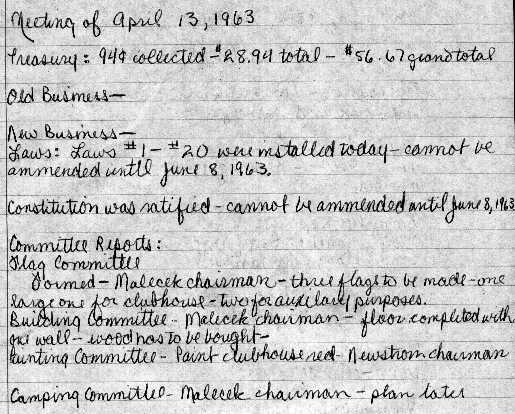 Meeting of April 13, 1963
Treasury: 94¢ collected - $28.94 total - $56.67 grand total
Old Business—
New Business—
Laws: Laws #1 - #20 were installed today - cannot be
ammended until June 8, 1963.
Constitution was ratified - cannot be ammended until June 8, 1963
Committee Reports:
Flag Committee
Formed - Malecek chairman - three flags to be made - one
large one for clubhouse - two for auxilary purposes.
Building Committee - Malecek chairman - floor completed with
one wall - wood has to be bought -
Painting Committee - Paint clubhouse red - Newstrom chairman
Camping Committee - Malecek chairman - plan later